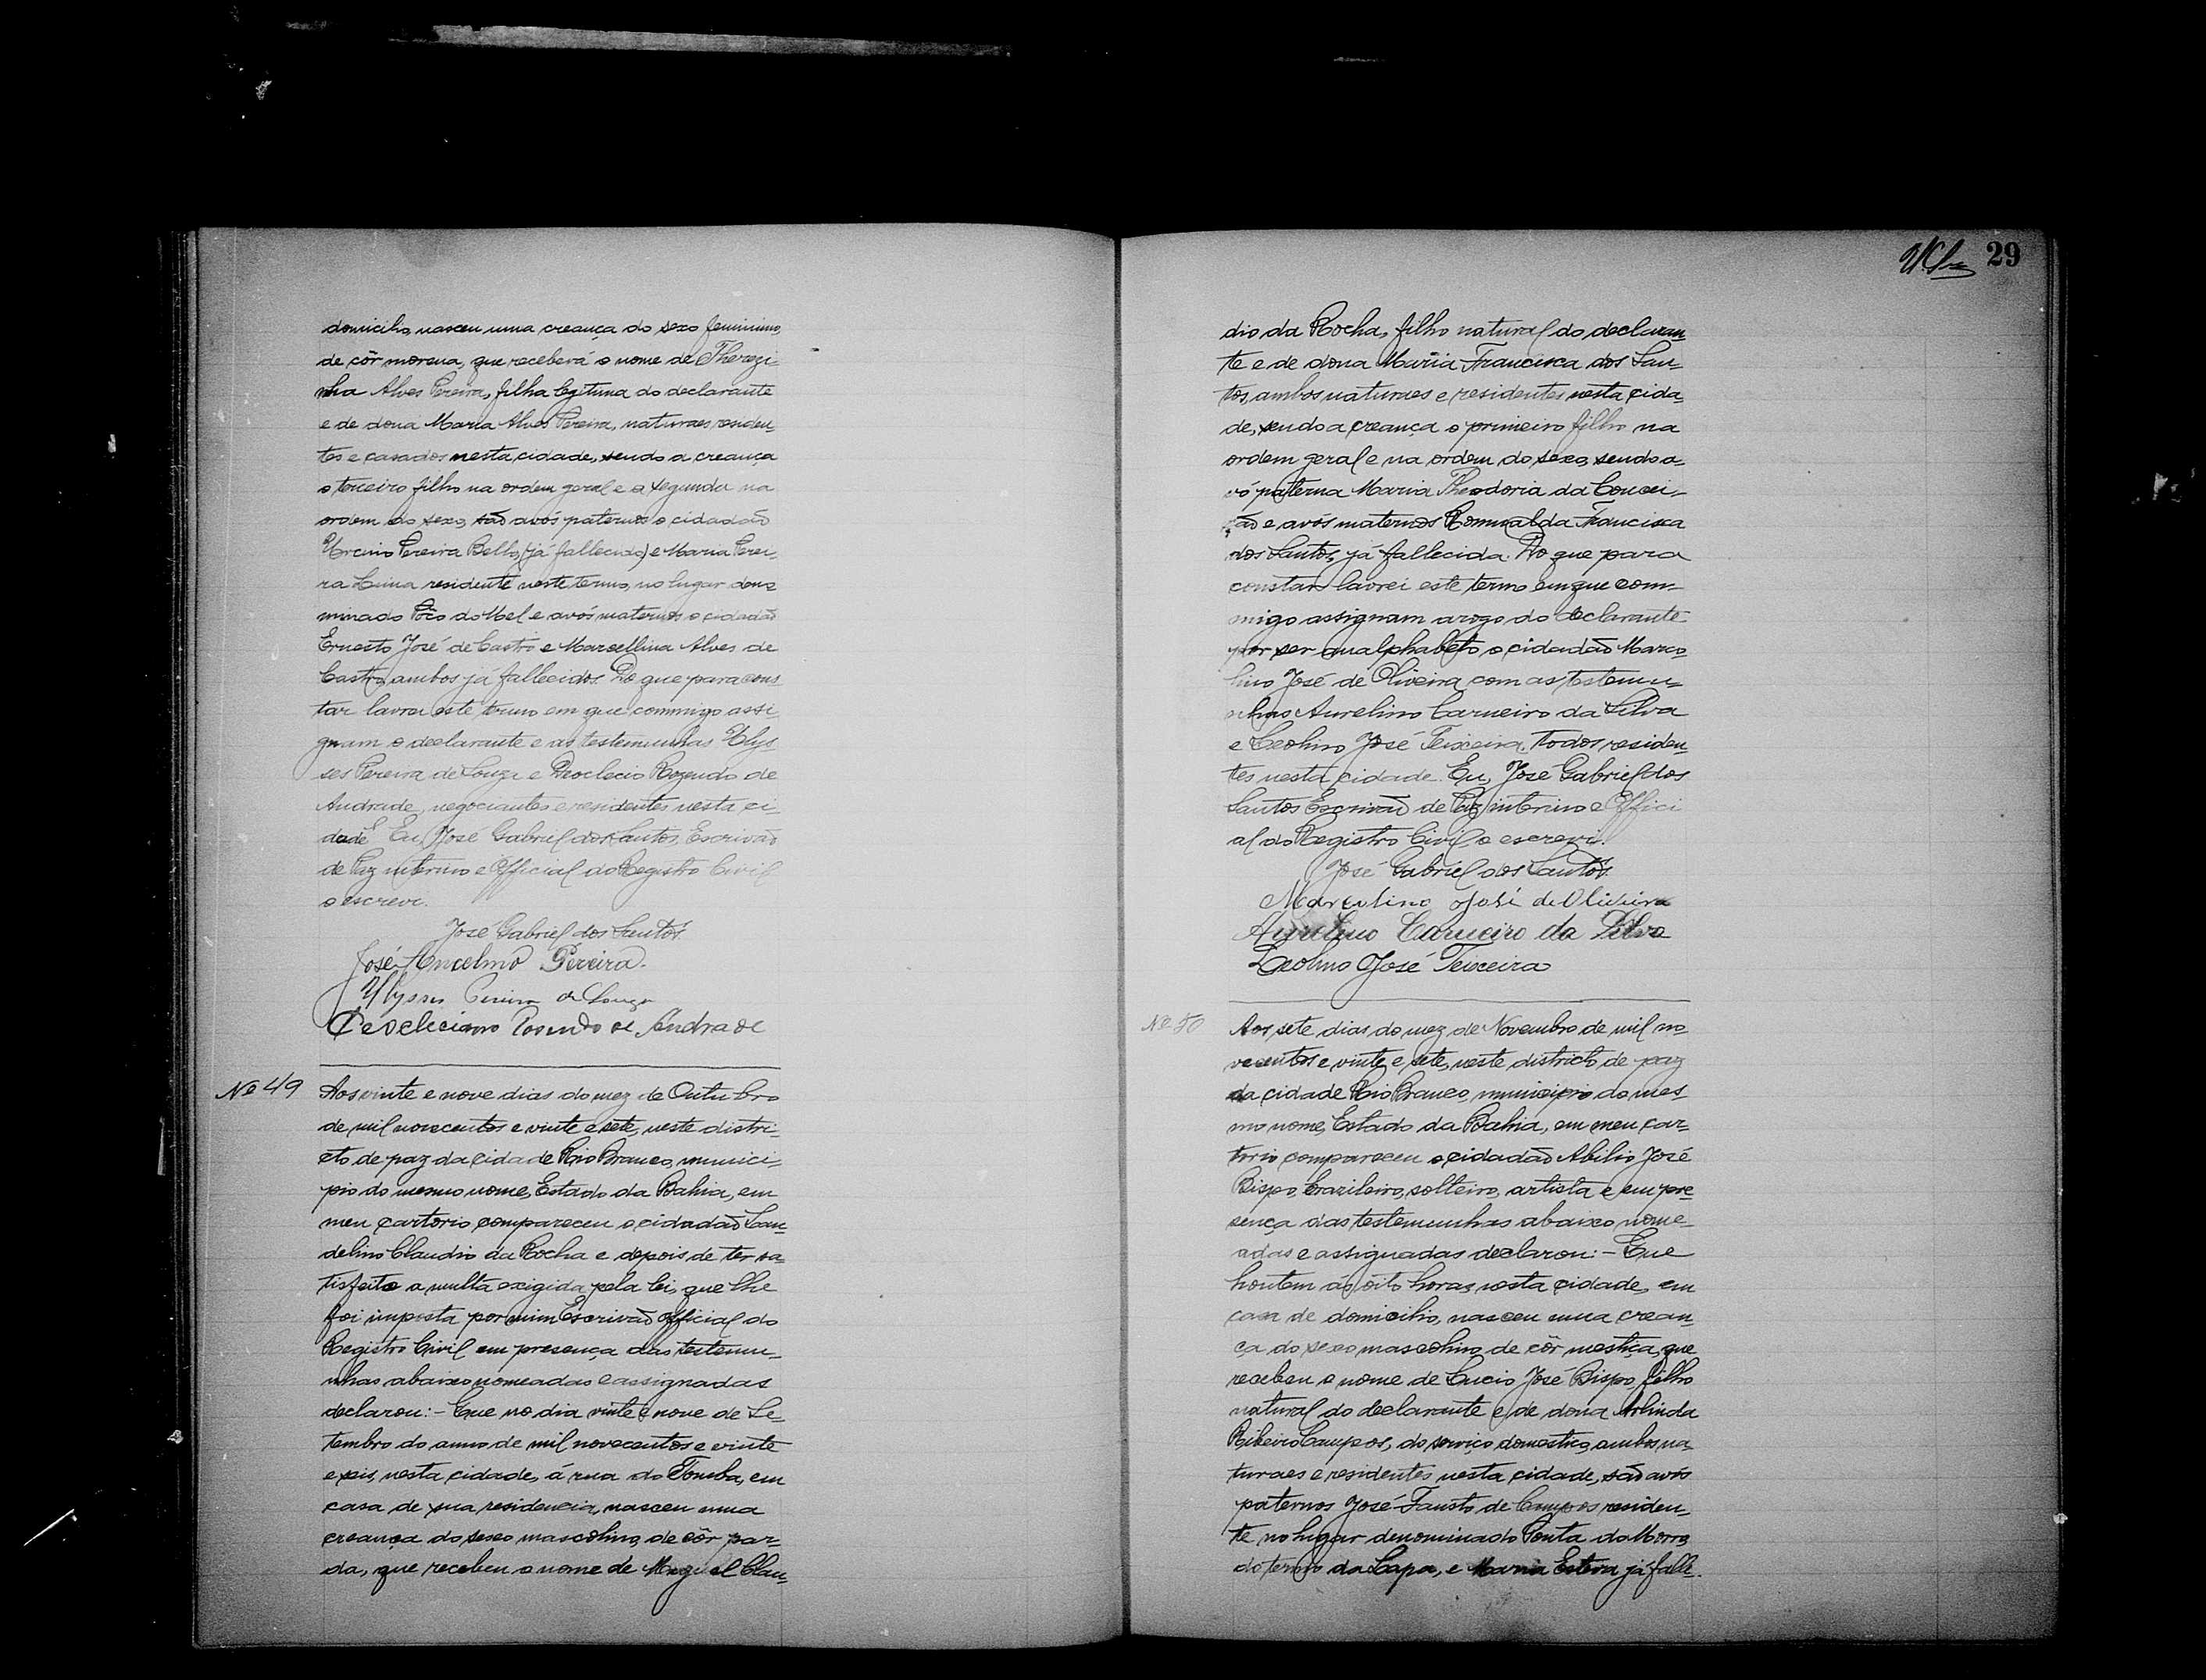 domicilio, nasceu uma creança do sexo feminino,
de côr morena, que receberá o nome de Therezi-
nha Alves Pereira, filha legitima do declarante
e de dona Maria Alves Pereira, naturaes residen-
tes e casados nesta cidade, sendo a creança
o terceiro filho na ordem geral e a segunda na
ordem do sexo, são avós paternos o cidadão
Ursino Pereira Bello, (já fallecido) e Maria Perei-
ra Lima residente neste termo, no lugar deno
minado Pôço do Mel e avós maternos o cidadão
Ernesto José de Castro e Marcellina Alves de
Castro, ambos já fallecidos. Do que para cons-
tar lavrei este termo em que commigo assi-
gnam o declarante e as testemunhas Ulys
ses Pereira de Souza e Deoclecio Rozendo de
Andrade, negociantes e residentes nesta ci-
dade. Eu, José Gabriel dos Santos, Escrivão
de Paz interino e Official do Registro Civil
o escrevi.
José Gabriel dos Santos
José Anselmo Pereira.
Ulysses Pereira de Souza
Deocleciano Rosendo de Andrade
Nº 49 Aos vinte e nove dias do mez de Outubro
de mil novecentos e vinte e sete, neste distri-
cto de paz da cidade Rio Branco, munici-
pio do mesmo nome, Estado da Bahia, em
meu cartorio compareceu o cidadão Lan-
delino Claudio da Rocha e depois de ter sa-
tisfeito a multa exigida pela lei, que lhe
foi imposta por mim Escrivão official do
Registro Civil em presença das testemu-
nhas abaixo nomeadas e assignadas
declarou:- Que no dia vinte e nove de Se-
tembro do anno de mil novecentos e vinte
e seis, nesta cidade, á rua do Tomba, em
casa de sua residencia, nasceu uma
creança do sexo mascolino, de côr par-
da, que recebeu o nome de Miguel Clau-
29
dio da Rocha, filho natural do declaran-
te e de dona Maria Francisca dos San-
tos, ambos naturaes e residentes nesta cida-
de, sendo a creança o primeiro filho na
ordem geral e na ordem do sexo, sendo a-
vó paterna Maria Theodoria da Concei-
ção e avós maternos Romualda Francisca
dos Santos, já fallecida. Do que para
constar lavrei este termo em que com-
migo assignam a rogo do declarante
por ser analphabeto, o cidadão Marco-
lino José de Oliveira com as testemu-
nhas Aurelino Carneiro da Silva
e Leolino José Teixeira, todos residen-
tes nesta cidade. Eu, José Gabriel dos
Santos Escrivão de Paz interino e Offici
al do Registro Civil o escrevi.
José Gabriel dos Santos
Marcolino José de Oliveira
Aurelino Carneiro da Silva
Leolino José Teixeira
Nº 50 Aos sete dias do mez de Novembro de mil no-
vecentos e vinte e sete, neste districto de paz
da cidade Rio Branco, municipio do mes-
mo nome, Estado da Bahia, em meu car-
torio compareceu o cidadão Abilio José
Bispo, brazileiro, solteiro, artista e em pre-
sença das testemunhas abaixo nome-
adas e assignadas declarou:- Que
hontem ás oito horas, nesta cidade, em
casa de domicilio, nasceu uma crean-
ça do sexo mascolino, de côr mestiça, que
recebeu o nome de Lucio José Bispo, filho
natural do declarante e de dona Arlinda
Ribeiro Campos, do serviço domestico, ambos na-
turaes e residentes nesta cidade, são avós
paternos José Fausto de Campos residen-
te no lugar denominado Ponta do Morro,
do termo da Lapa, e Maria Esteva já falle-